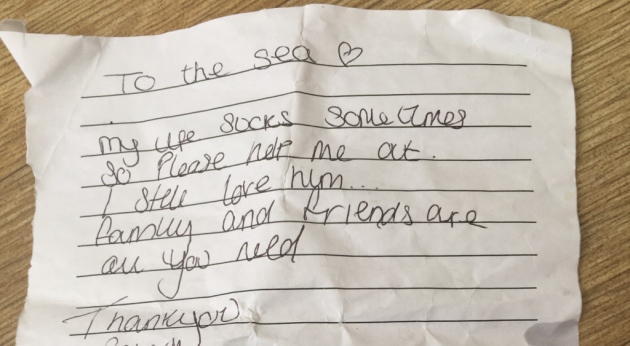 To the sea ♡
My life sucks sometimes
so Please help me out.
I still love him...
Family and friends are
all you need
Thankyou